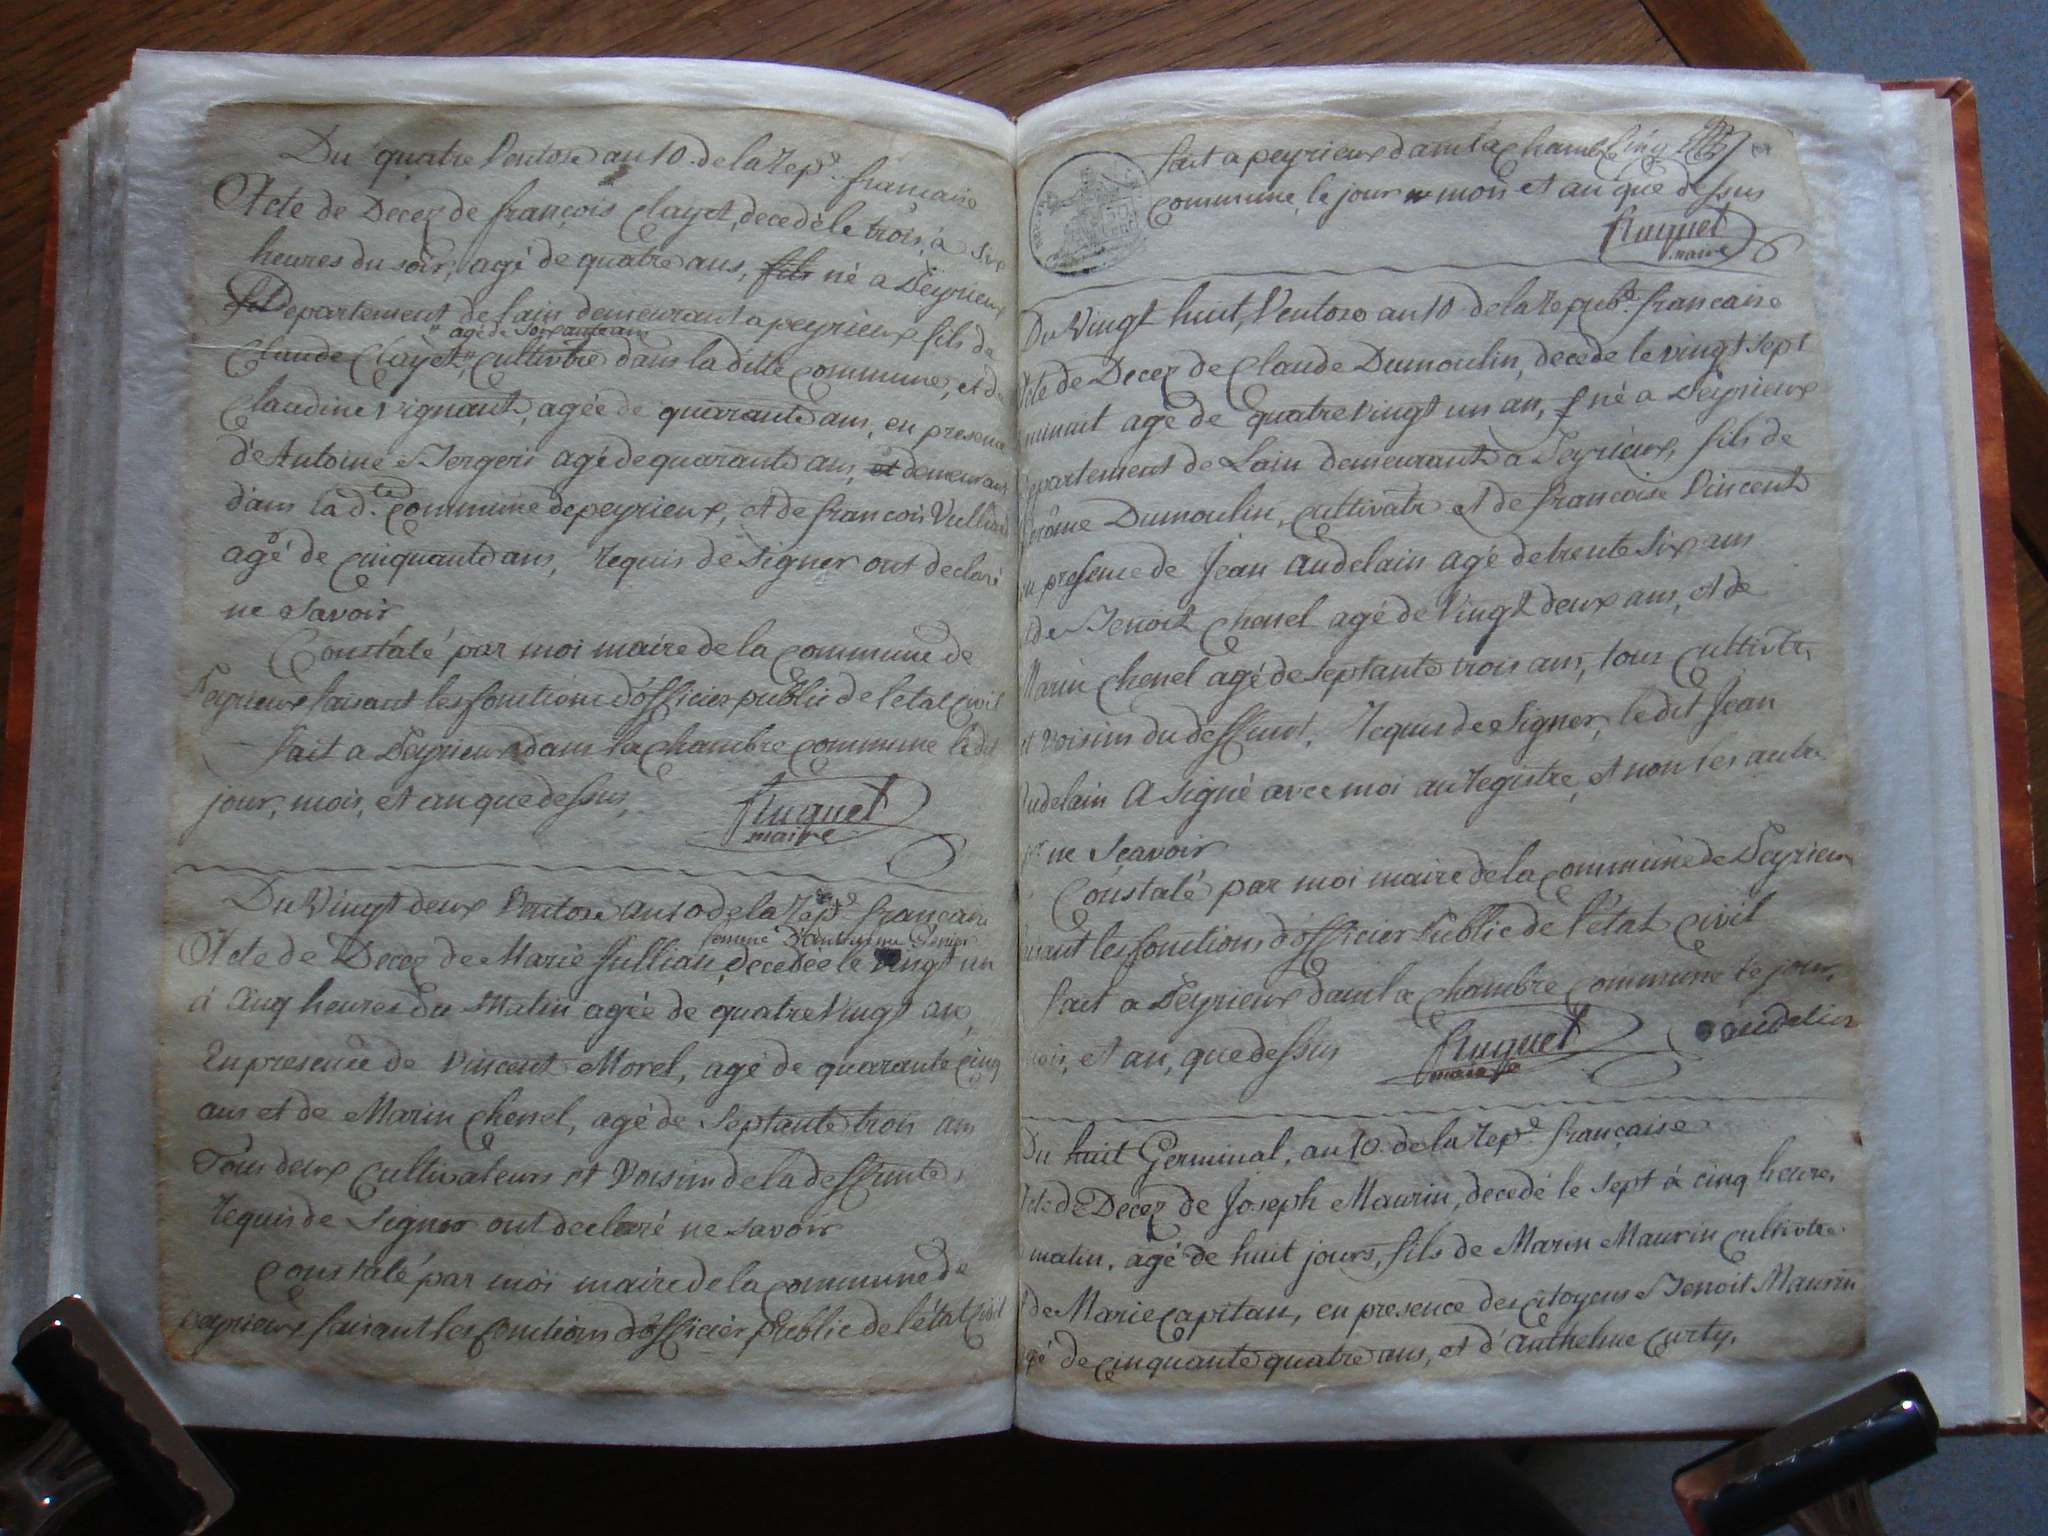 Du quatre Ventose an 10 de la Rep.e francaise
Acte de Decez de françois Clayet, decedé le trois, à six
heures du soir, agé de quatre ans, fils né a Peyrieux
Departement de Lain demeurant a peyrieux fils de
agé de soixante ans
Claude Clayet, cultivtre dans la ditte commune, et de
Claudine Vignant, agée de quarante ans, en presence
d'Antoine Bergeri agé de quarante ans, et demeurant
dans la d.te commune de peyrieux, et de françois
agé de cinquante ans, requis de signer ont declaré
ne savoir
Constaté par moi maire de la commune de
Peyrieux faisant les fonctions d'officier public de l'état civil
fait a Peyrieux dans la chambre commune le dit
jour, mois, et an que dessus,
Huguet
maire
Du Vingt deux Ventose an 10 de la Rep.e francaise
femme d'Anthelme
Acte de Decez de Marie Jullian, decedée le vingt un
à cinq heures du Matin agée de quatre Vingt an,
En presence de Vincent Morel, agé de quarante cinq
ans et de Marin Chenel, agé de Septante trois ans
Tous deux cultivateurs et Voisins de la deffunte,
Requis de Signer ont declaré ne savoir
Constaté par moi maire de la commune de
peyrieux faisant les fonctions d'officier public de l'état civil
fait a peyrieux dans la chambre
commune, le jour mois et an que dessus
Huguet
maire
Du Vingt huit, Ventose an 10 de la Repub.e francaise
Acte de Decez de Claude Dumoulin, decede le vingt sept
minuit agé de quatre vingt un an, né a Peyrieux
Departement de Lain demeurant a Peyrieux, fils de
Dumoulin, cultivatr et de francoise Vincent
en presence de Jean Audelain agé de trente six ans
de Benoit Chenel agé de Vingt deux ans, et de
Marin Chenel agé de septante trois ans, tous cultivtr,
et voisins du deffunt, Requis de Signer, le dit Jean
Audelain A signé avec moi au registre, et non les autre
ne Scavoir
Constaté par moi maire de la commune de Peyrieux
faisant les fonctions d'officier Public de l'état civil
fait a Peyrieux dans la chambre commune le jour,
mois, et an, que dessus
Huguet
maire
audelin
Du huit Germinal, an 10 de la Rep.e française
Acte de Decez de Joseph Maurin, decedé le sept à cinq heure,
matin, agé de huit jours, fils de Marin Maurin cultivtre
de Marie Capitan, en presence des citoyens Benoit Maurin
agé de cinquante quatre ans, et d'Anthelme Curty,